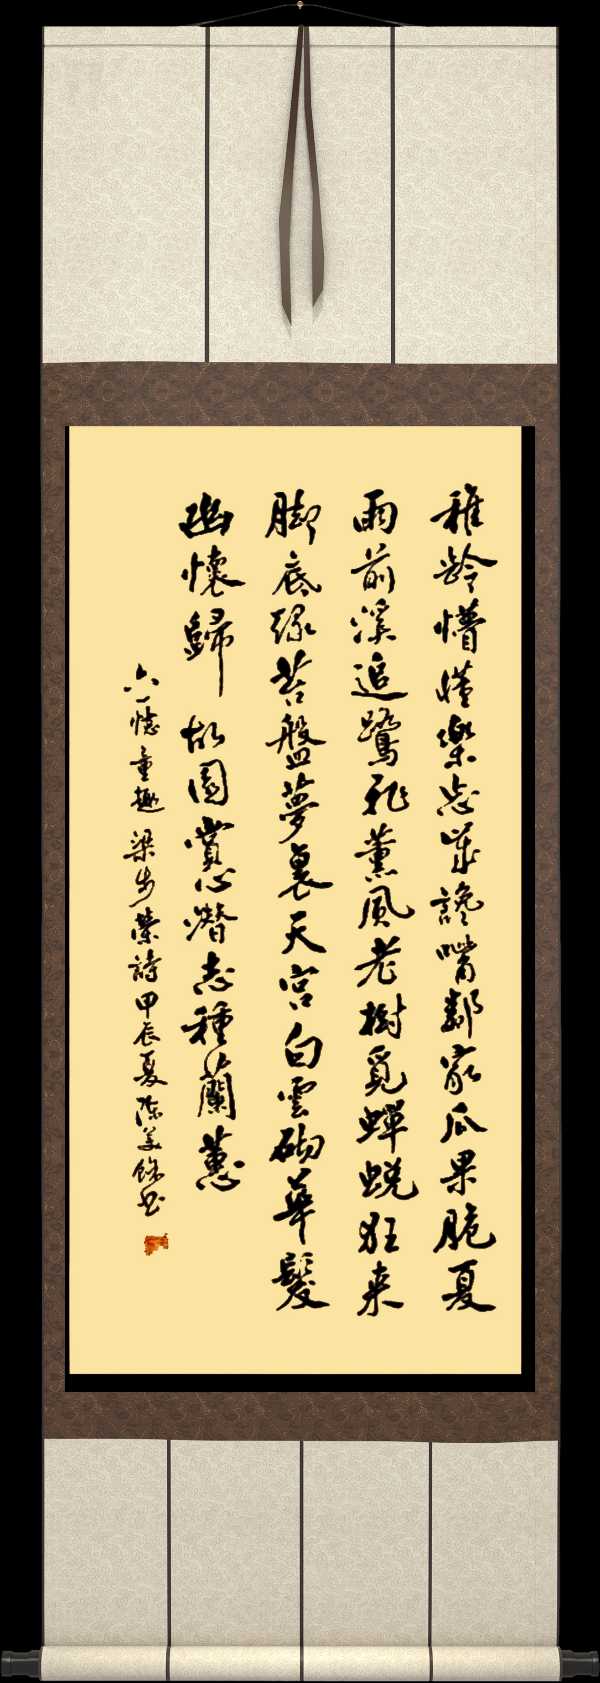 稚齡懵懂樂忘歲讒嘴鄰家瓜果脆夏
雨前溪追鷺飛薰風老樹覓蟬蛻狂来
腳底綠苔盤夢裏天宮白雲砌華髮
幽懷歸故園賞心潛志種蘭蕙
六一憶童趣梁步榮詩甲辰夏陳美錦书